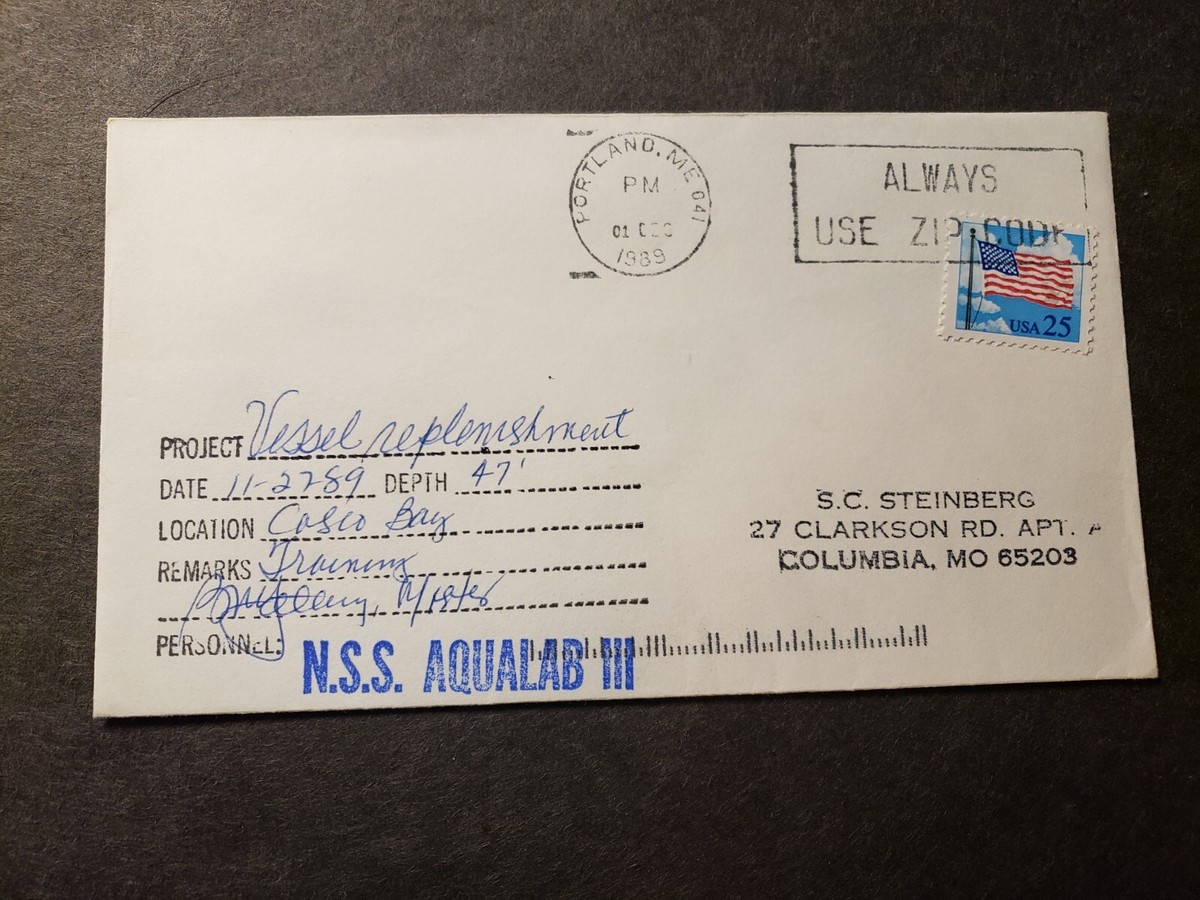 PORTLAND, ME 041
PM
01 DEC
1989
ALWAYS
USE ZIP CODE
USA 25
PROJECT Vessel replenishment
DATE 11-27-89 DEPTH 47'
LOCATION Casco Bay
REMARKS Training
Master
PERSONNEL:
N.S.S. AQUALAB III
S.C. STEINBERG
27 CLARKSON RD. APT. A
COLUMBIA, MO 65203